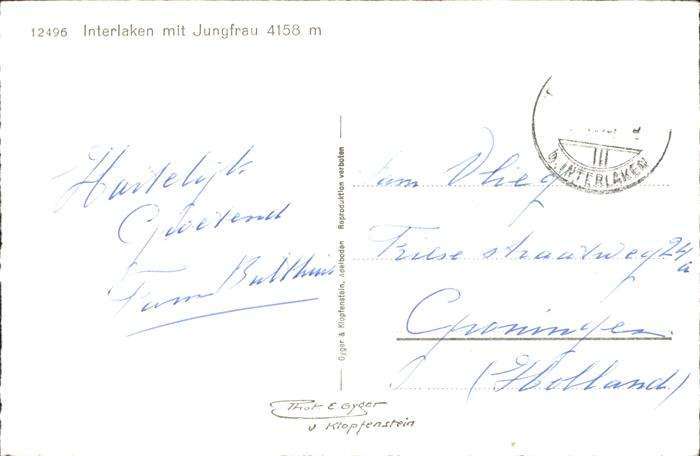 12496 Interlaken mit Jungfrau 4158 m
Hartelijk
Groetend
Fam
Fam Vlieg
Friese straatweg 24/a
Groningen
(Holland)
INTERLAKEN
Gyger & Klopfenstein, Adelboden Reproduktion verboten
Phot E Gyger
u Klopfenstein